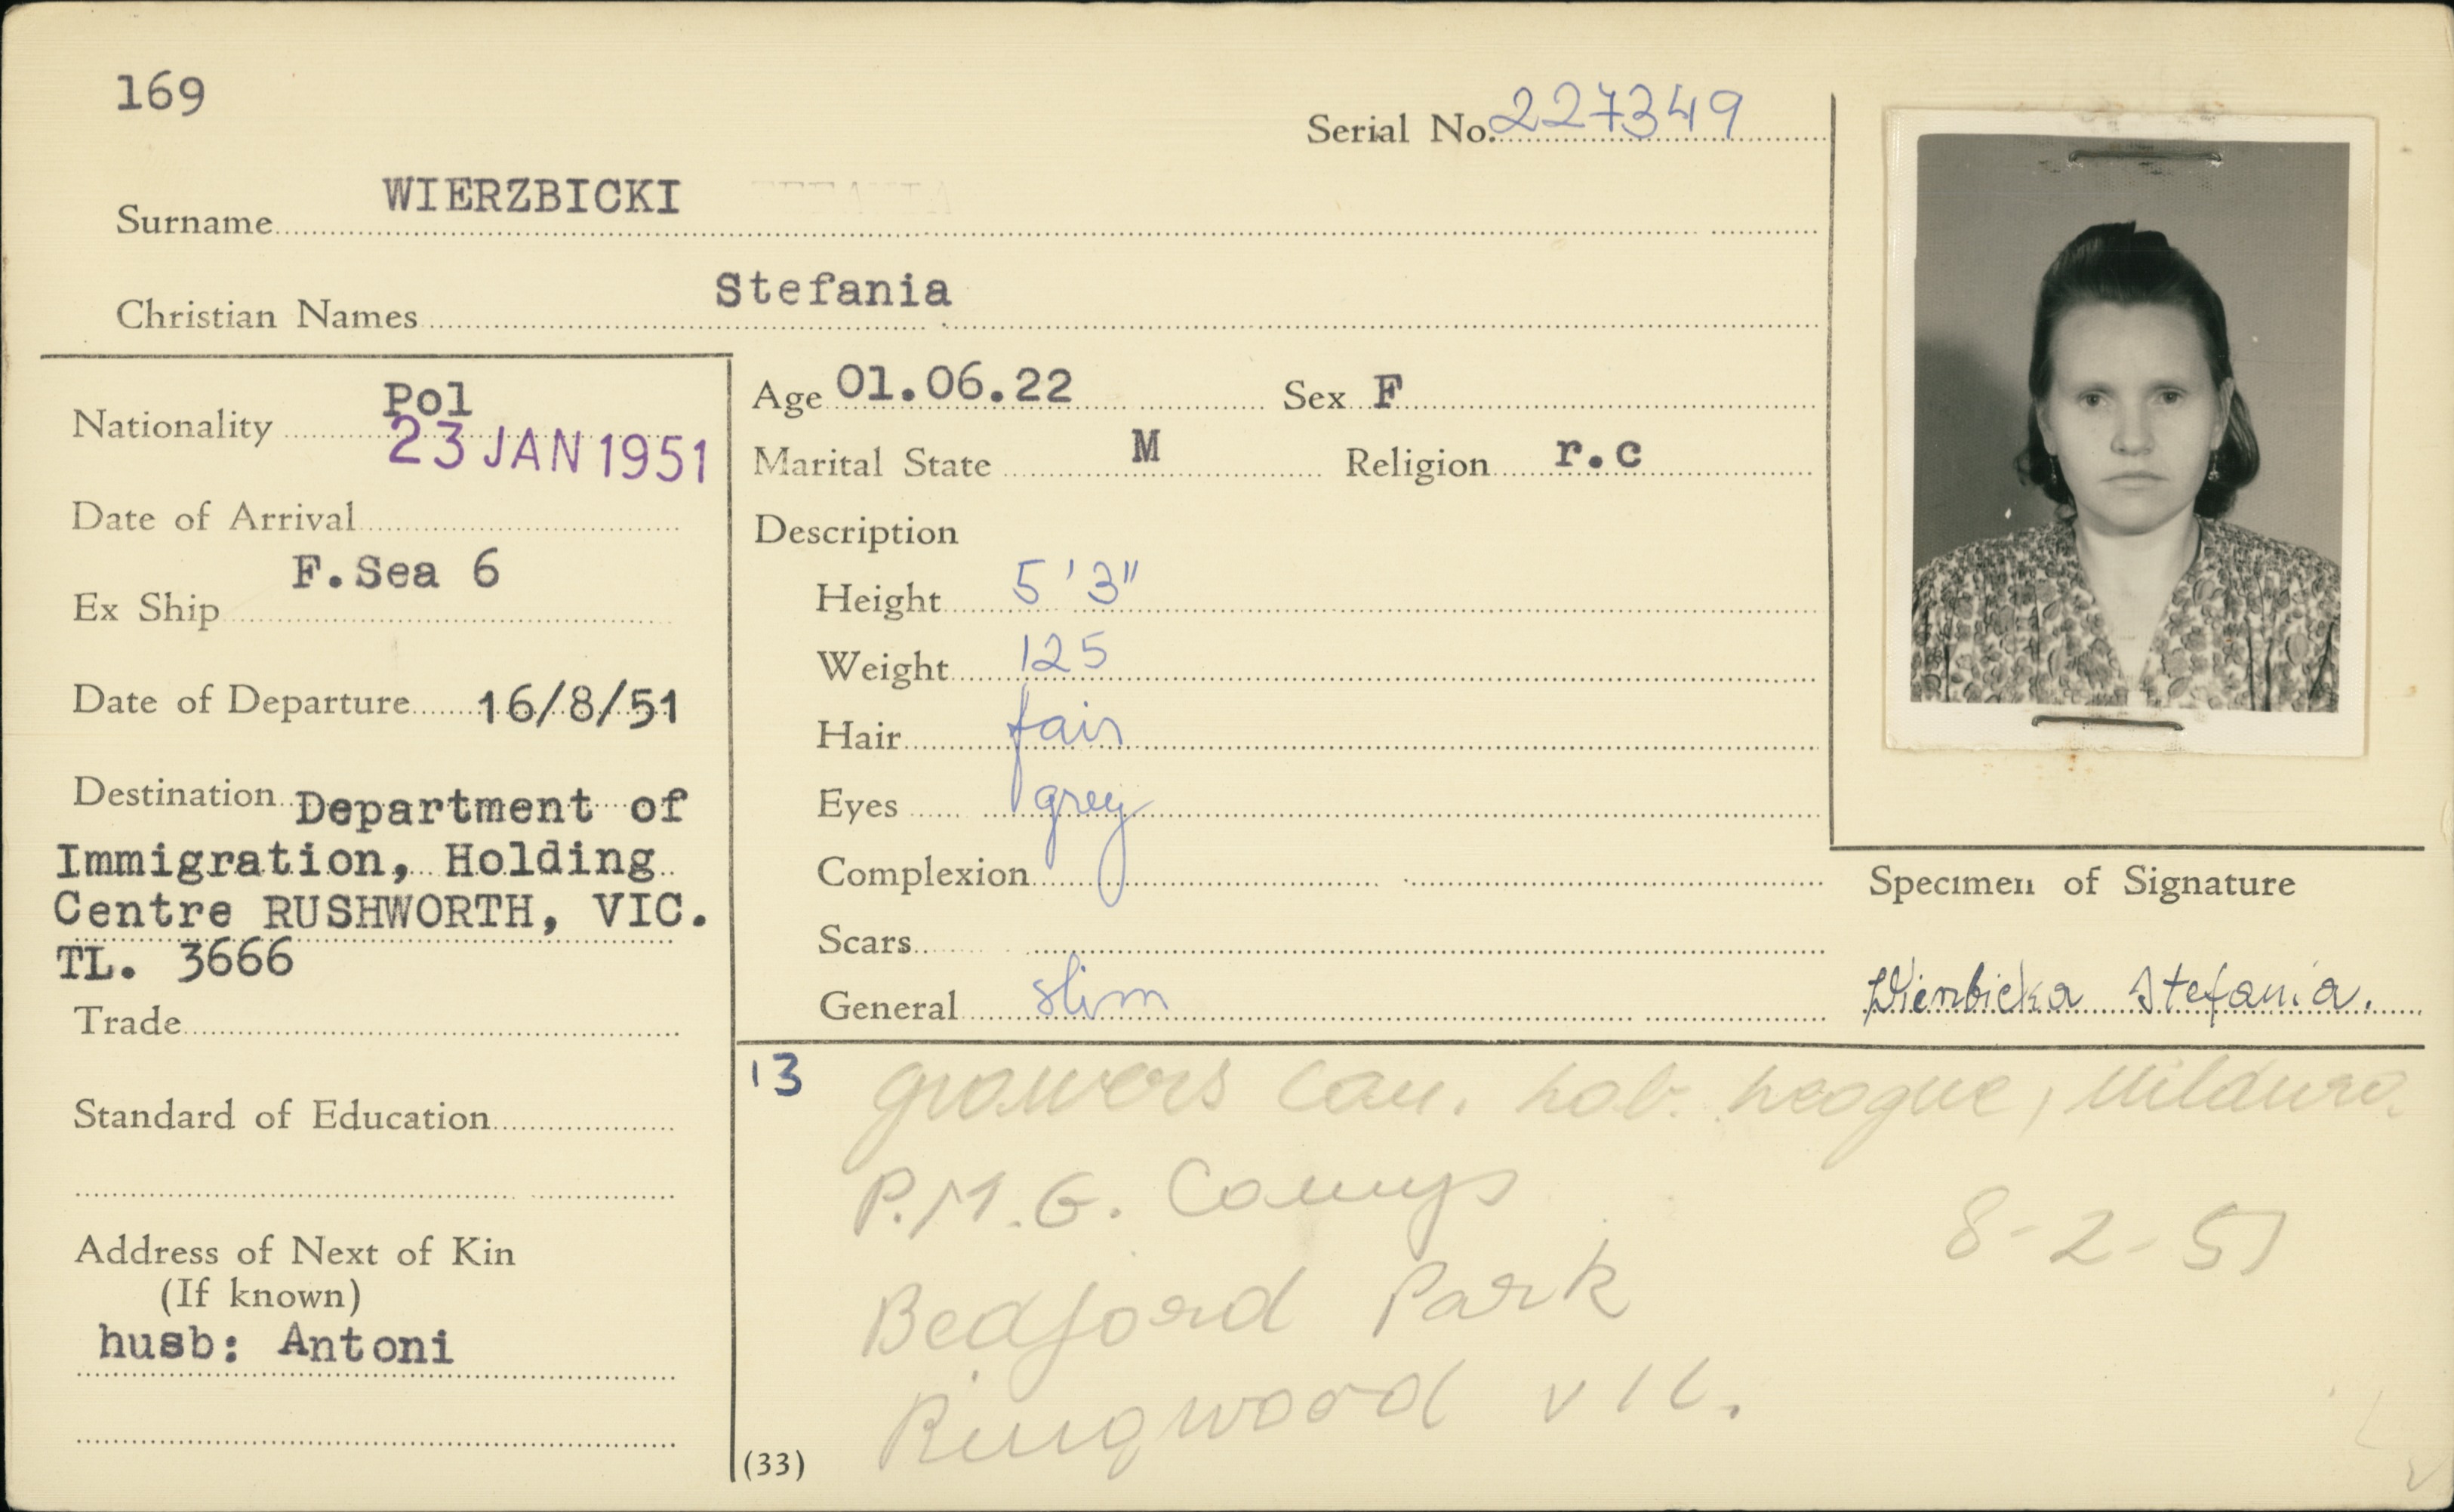 169
Serial No. 227349
Surname WIERZBICKI
Christian Names Stefania
Nationality Pol
23 JAN 1951
Date of Arrival
Ex Ship F.Sea 6
Date of Departure 16/8/51
Destination Department of
Immigration, Holding
Centre RUSHWORTH, VIC.
TL. 3666
Trade
Standard of Education
Address of Next of Kin
(If known)
husb: Antoni
Age 01.06.22 Sex F
Marital State M Religion r.c
Description
Height 5'3"
Weight 125
Hair fair
Eyes grey
Complexion
Scars
General slim
Specimen of Signature
Wierzbicka Stefania.
13
growers Lab. League, Mildura.
P.M.G. Camps
8-2-51
Bedford Park
Ringwood VIC.
(33)